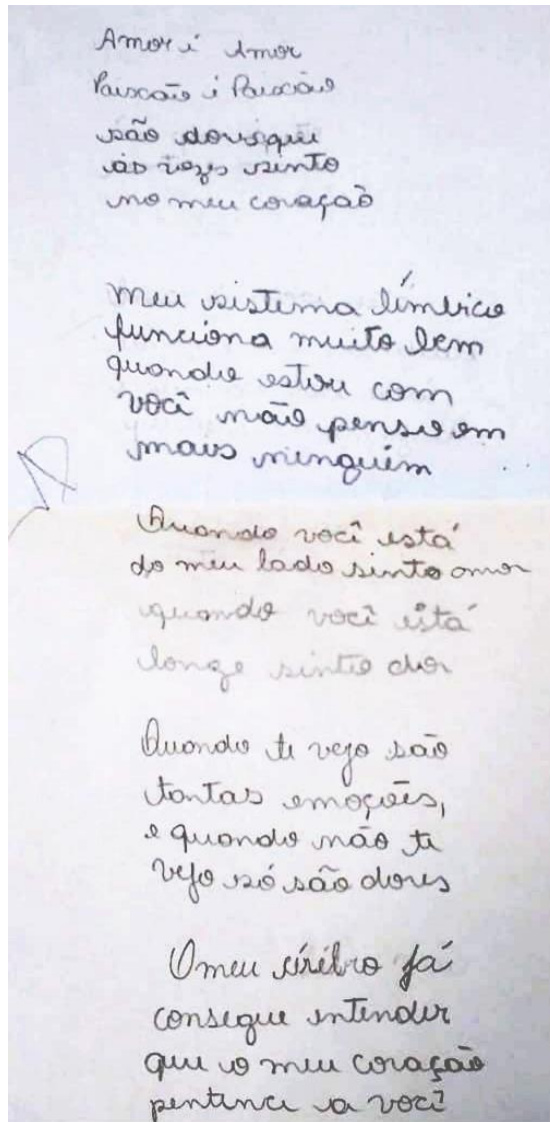 Amor é Amor
Paixão é Paixão
são dores que
às vezes sinto
no meu coração
meu sistema límbico
funciona muito bem
quando estou com
você não penso em
mais ninguém
Quando você está
do meu lado sinto amor
quando você está
longe sinto dor
Quando te vejo são
tantas emoções,
e quando não te
vejo só são dores
O meu cérebro já
consegue entender
que o meu coração
pentence a você